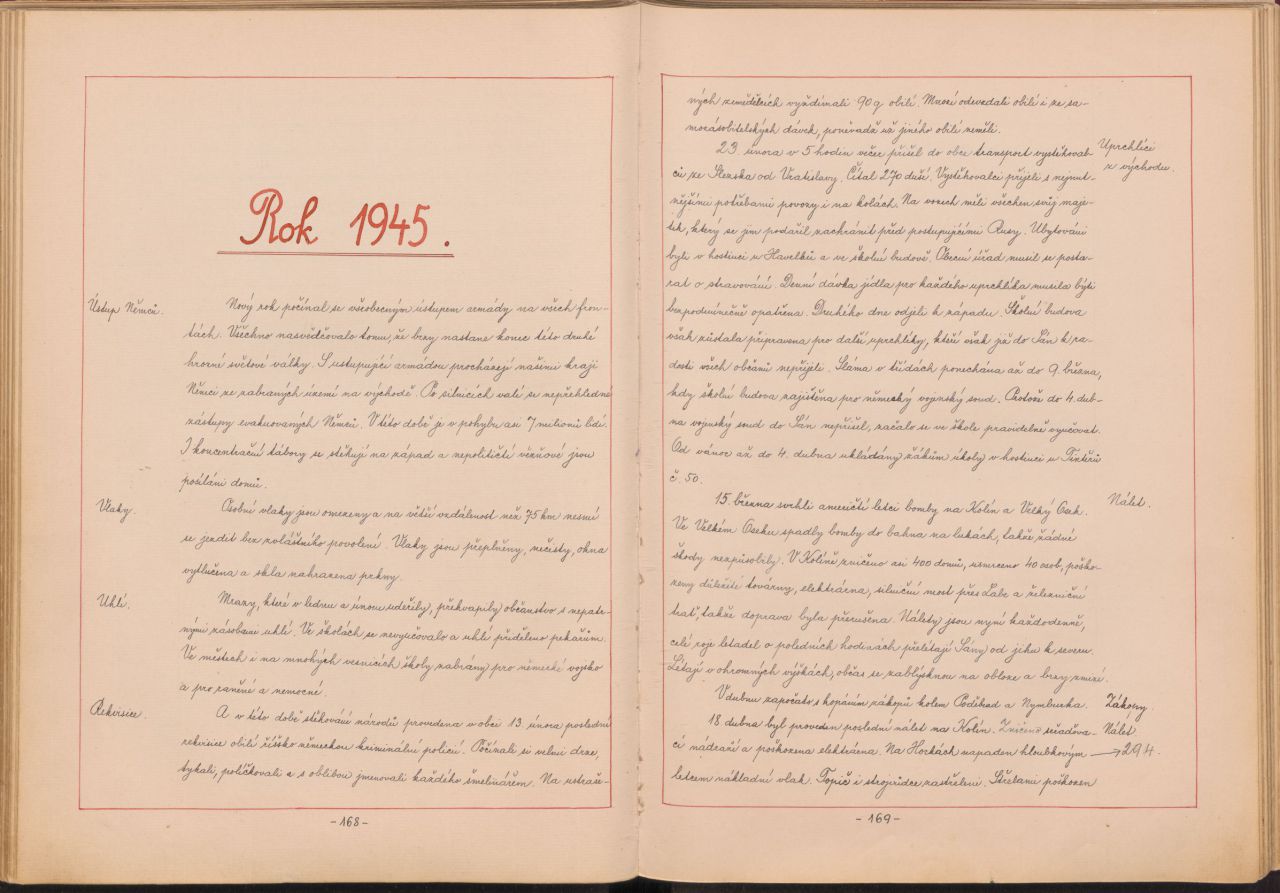 Rok 1945.
Ústup Němců.
Nový rok počínal se všeobecným ústupem armády na všech fron-
tách. Všechno nasvědčovalo tomu, že brzy nastane konec této druhé
hrozné světové války. S ustupující armádou procházejí našimi kraji
Němci ze zabraných území na východě. Po silnicích valí se nepřehledné
zástupy evakuovaných Němců. V této době je v pohybu asi 7 milionů lidí.
I koncentrační tábory se stěhují na západ a nepolitičtí vězňové jsou
posíláni domů.
Vlaky.
Osobní vlaky jsou omezeny a na větší vzdálenost než 75 km nesmí
se jezdit bez zvláštního povolení. Vlaky jsou přeplněny, nečisty, okna
vytlučena a skla nahrazena prkny.
Uhlí.
Mrazy, které v lednu a únoru udeřily, překvapily občanstvo s nepatr-
nými zásobami uhlí. Ve školách se nevyučovalo a uhlí přiděleno pekařům.
Ve městech i na mnohých vesnicích školy zabrány pro německé vojsko
a pro raněné a nemocné.
Rekvisice.
A v této době stěhování národů provedena v obci 13. února poslední
rekvisice obilí říšsko německou kriminální policií. Počínali si velmi drze,
tykali, políčkovali a s oblibou jmenovali každého šmelinářem. Na ustraše-
-168-
ných zemědělcích vyždímali 90 q obilí. Mnozí odevzdali obilí i ze sa-
mozásobitelských dávek, poněvadž už jiného obilí neměli.
Uprchlíci
z východu.
23. února v 5 hodin večer přišel do obce transport vystěhoval-
ců ze Slezska od Vratislavy. Čítal 270 duší. Vystěhovalci přijeli s nejnut-
nějšími potřebami povozy i na kolách. Na vozech měli všechen svůj maje-
tek, který se jim podařil zachránit před postupujícími Rusy. Ubytováni
byli v hostinci u Havelků a ve školní budově. Obecní úřad musil se posta-
rat o stravování. Denní dávka jídla pro každého uprchlíka musila býti
bezpodmínečně opatřena. Druhého dne odjeli k západu. Školní budova
však zůstala připravena pro další uprchlíky, kteří však již do Sán k ra-
dosti všech občanů nepřijeli. Sláma v třídách ponechána až do 9. března,
kdy školní budova zajištěna pro německý vojenský soud. Protože do 4. dub-
na vojenský soud do Sán nepřišel, začalo se ve škole pravidelně vyučovat.
Od vánoc až do 4. dubna ukládány žákům úkoly v hostinci u
č. 50.
Nálet.
15. března svrhli američtí letci bomby na Kolín a Velký Osek.
Ve Velkém Oseku spadly bomby do bahna na lukách, takže žádné
škody nezpůsobily. V Kolíně zničeno asi 400 domů, usmrceno 40 osob, poško-
zeny důležité továrny, elektrárna, silniční most přes Labe a železniční
trať, takže doprava byla přerušena. Nálety jsou nyní každodenně,
celé roje letadel o poledních hodinách přelétají Sány od jihu k severu.
Létají v ohromných výškách, občas se zablýsknou na obloze a brzy zmizí.
Zákopy.
V dubnu započato s kopáním zákopů kolem Poděbrad a Nymburka.
Nálet
→294.
18 dubna byl proveden poslední nálet na Kolín. Zničeno seřaďova-
cí nádraží a poškozena elektrárna. Na Horkách napaden hloubkovým
letcem nákladní vlak. Topič i strojvůdce zastřeleni. Střelami poškozen
-169-